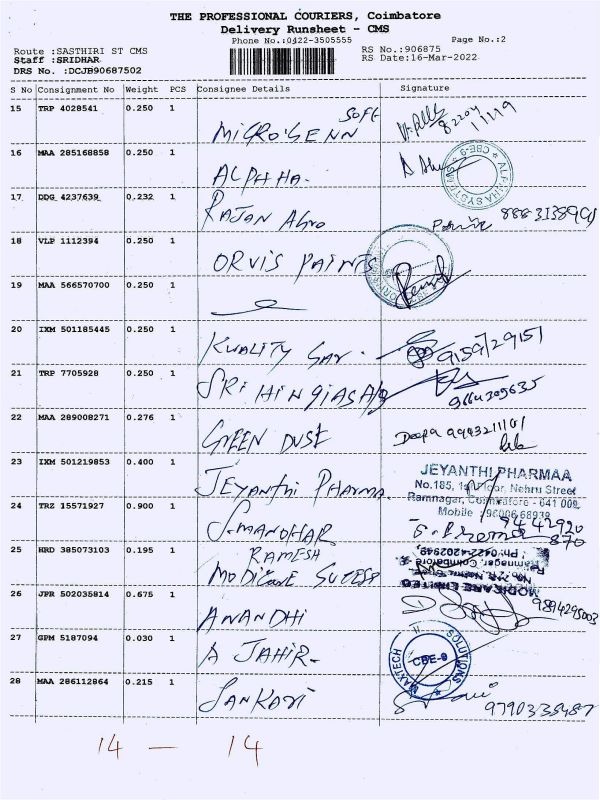 THE PROFESSIONAL COURIERS, Coimbatore
Delivery Runsheet - CMS
Phone No.:0422-3505555
Page No.:2
Route :SASTHIRI ST CMS
RS No.:906875
Staff :SRIDHAR
RS Date:16-Mar-2022
DRS No. :DCJB90687502
S No Consignment No Weight PCS Consignee Details Signature
15 TRP 4028541 0.250 1
16 MAA 285168858 0.250 1
ALPHA.
17 DDG 4237639 0.232 1
RAJAN Agro
18 VLP 1112394 0.250 1
ORVIS PAINTS
19 MAA 566570700 0.250 1
20 IXM 501185445 0.250 1
KWALITY
9159729151
21 TRP 7705928 0.250 1
SRI
22 MAA 289008271 0.276 1
GREEN DUSE
Deepa
23 IXM 501219853 0.400 1
JEYANTHI PHARMA.
JEYANTHI PHARMAA
No.185, Nehru Street
Ramnagar, Coimbatore - 641 009
Mobile : 96006 68939
24 TRZ 15571927 0.900 1
S.MANOHAR
25 HRD 385073103 0.195 1
RAMESH
MODICARE
MODICARE LIMITED
Ramnagar, Coimbatore
Ph: 0422-4202949
26 JPR 502035814 0.675 1
ANANDHI
27 GPM 5187094 0.030 1
A JAHIR
MAXTECH SOLUTIONS
CBE-9
28 MAA 286112864 0.215 1
SANKARI
14 — 14